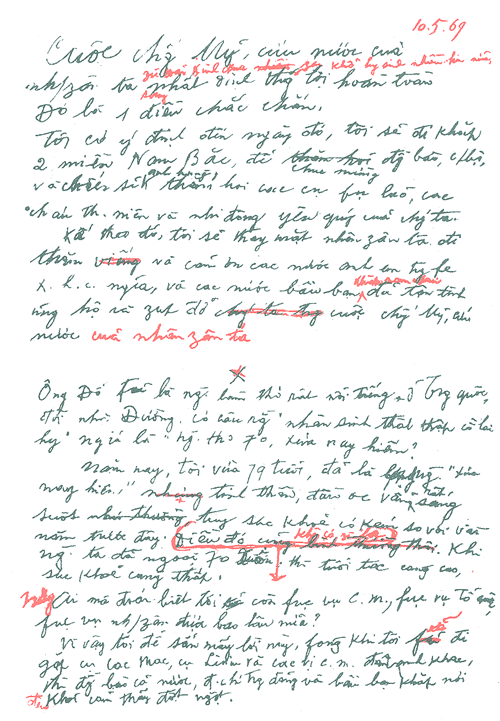 10.5.69
Cuộc chg Mỹ, cứu nước của
nh/zân ta zù fải kinh qua nhiều zan khổ hy sinh nhiều hơn nữa,
song nhất định thg lợi hoàn toàn
Đó là 1 điều chắc chắn.
Tôi có ý định đến ngày đó, tôi sẽ đi khắp
2 miền Nam Bắc, để chúc mừng đg bào,
và chiến sĩ anh hùng, thăm hỏi các cụ fụ lão, các
cháu th. niên và nhi đồng yêu quý của chg ta.
Kế theo đó, tôi sẽ thay mặt nhân zân ta đi
thăm và cám ơn các nước anh em tr. fe
x. h. c. nghĩa, và các nước bầu bạn đã tận tình
ủng hộ và zúp đỡ cuộc chg Mỹ, cứu
nước của nhân zân ta
x
Ông Đỗ Fủ là ng. làm thơ rất nổi tiếng ở Trg quốc,
đời nhà Đường. Có câu rg "nhân sinh thất thập cổ lai
hy" nghĩa là "ng. thọ 70, xưa nay hiếm".
Năm nay, tôi vừa 79 tuổi, đã là "xưa
nay hiếm" nhưng tinh thần, đầu óc vẫn rất sáng
suốt tuy sức khoẻ có kém so với vài
năm trước đây. Khi
ng. ta đã ngoài 70 xuân, thì tuổi tác càng cao,
sức khoẻ càng thấp.
Nhưng ai mà đoán biết tôi còn fục vụ C.M., fục vụ Tổ quốc,
fục vụ nh/zân được bao lâu nữa?
Vì vậy tôi để sẵn mấy lời này, fòng khi tôi sẽ đi
gặp cụ Các Mác, cụ Lênin và các vị c.m. đàn anh khác,
thì đg bào cả nước, đ.chí trg đảng và bầu bạn khắp nơi
đều khỏi cảm thấy đột ngột.